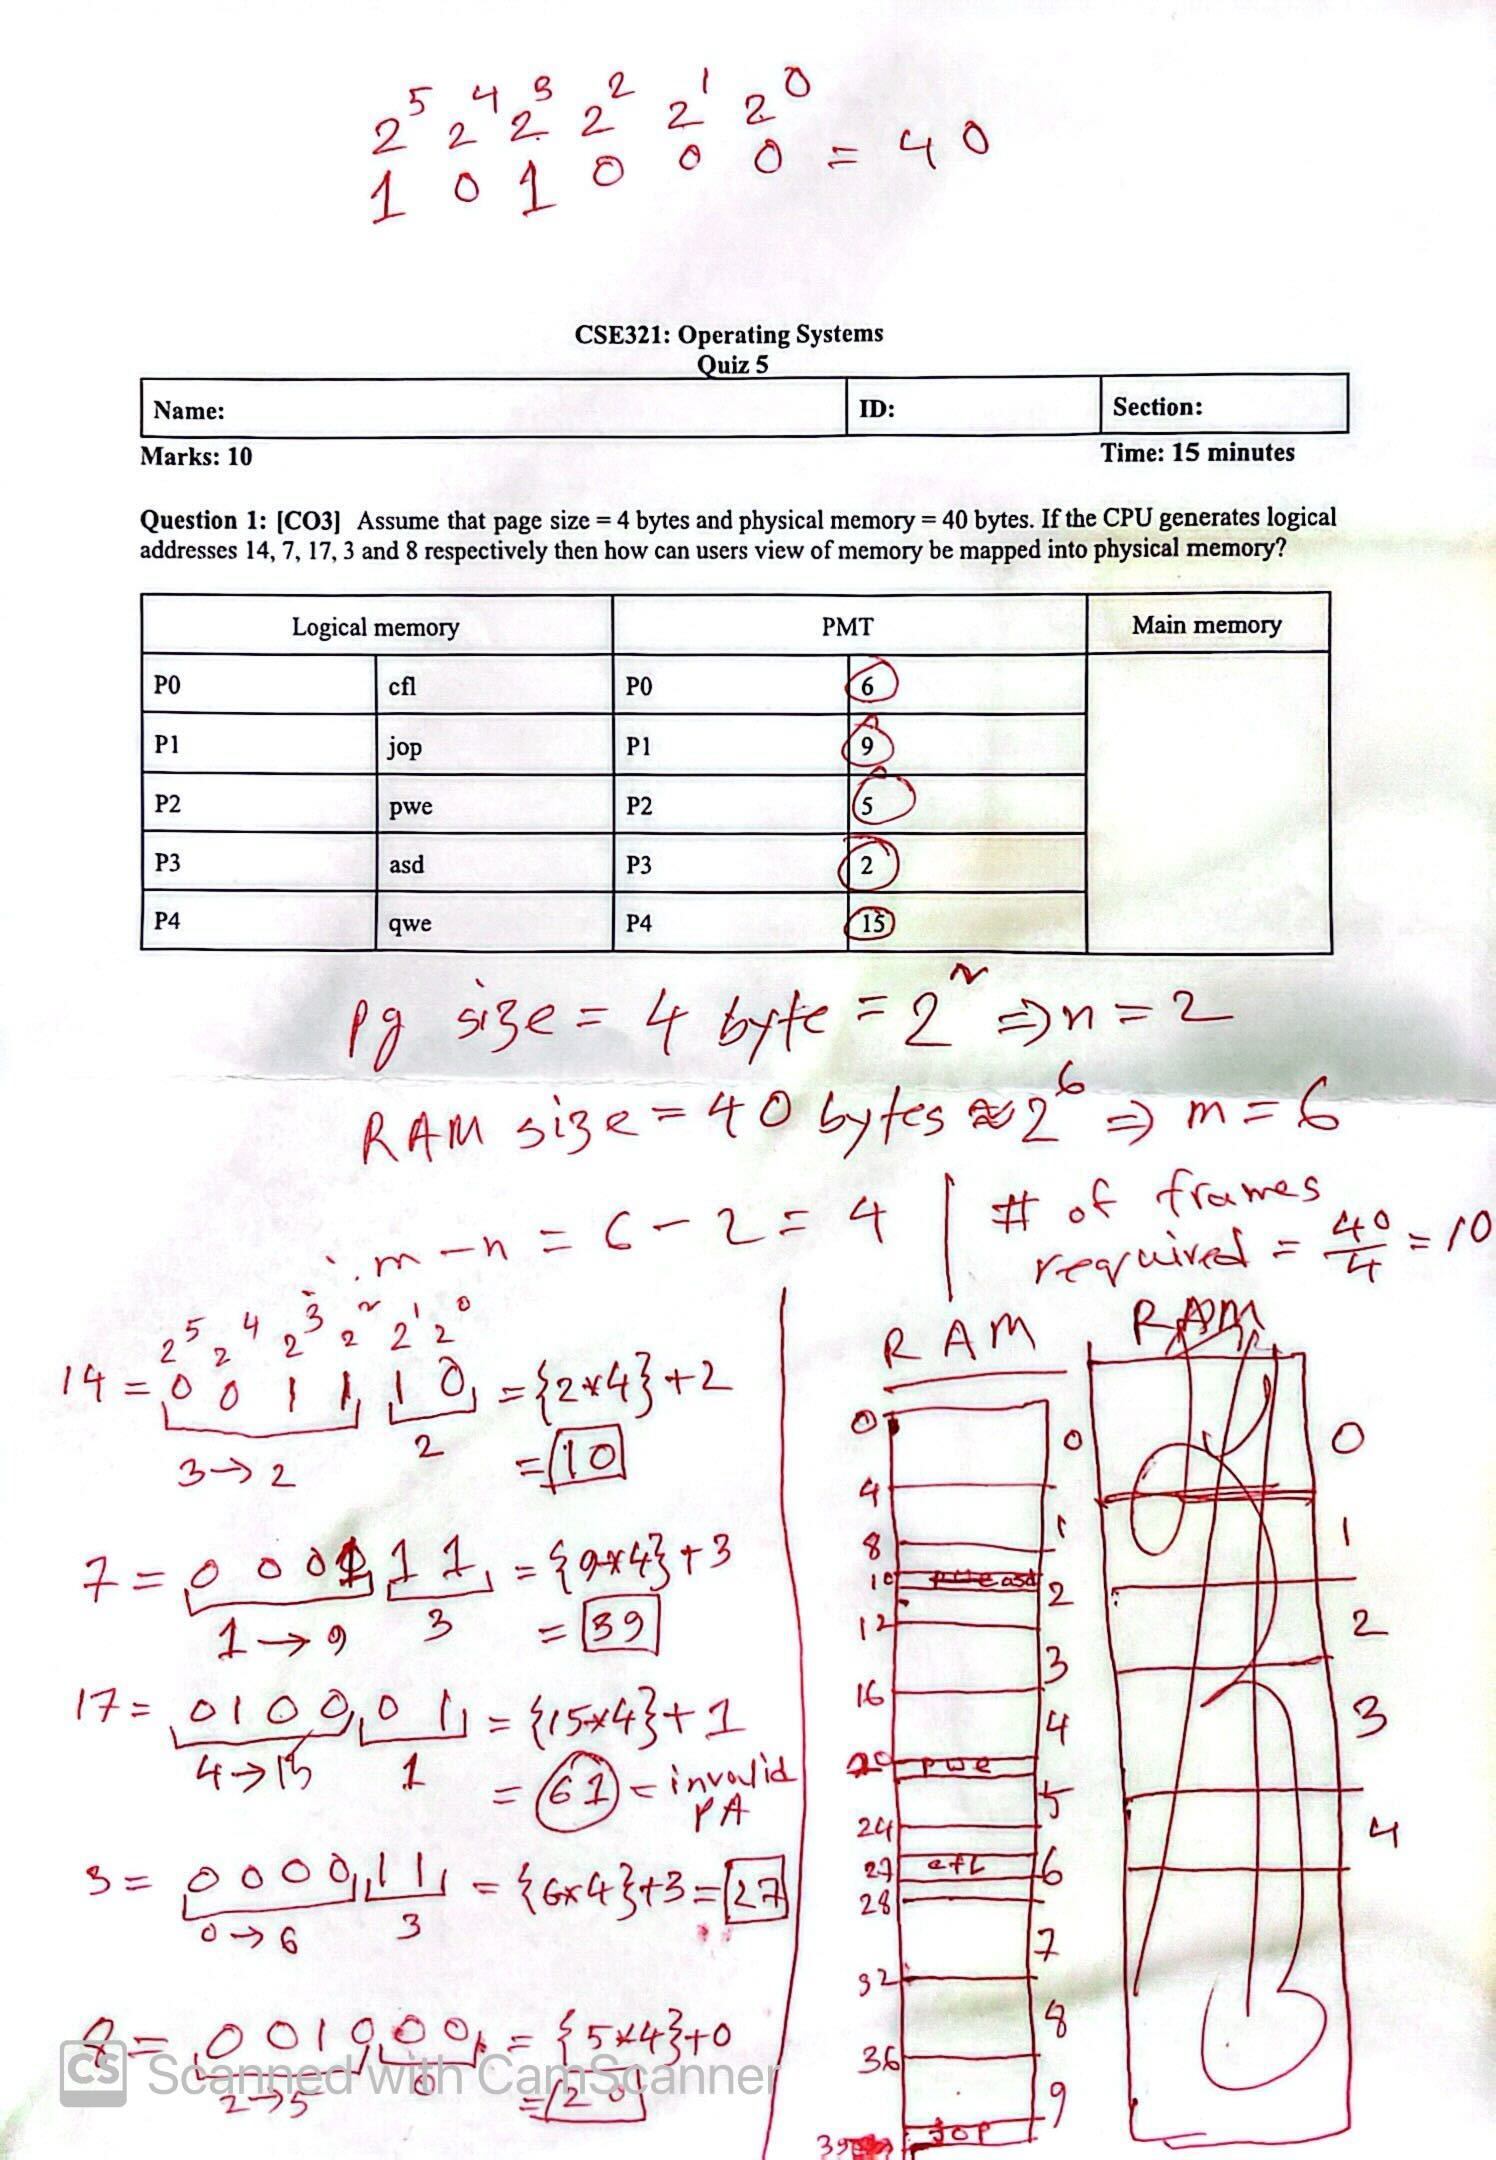 2^5 2^4 2^3 2^2 2^1 2^0
1 0 1 0 0 0 = 40
CSE321: Operating Systems
Quiz 5
Name: ID: Section:
Marks: 10 Time: 15 minutes
Question 1: [CO3] Assume that page size = 4 bytes and physical memory = 40 bytes. If the CPU generates logical
addresses 14, 7, 17, 3 and 8 respectively then how can users view of memory be mapped into physical memory?
Logical memory PMT Main memory
P0 cfl P0 6
P1 jop P1 9
P2 pwe P2 5
P3 asd P3 2
P4 qwe P4 15
pg size = 4 byte = 2^2 ⇒ n = 2
RAM size = 40 bytes ≈ 2^6 ⇒ m = 6
∴ m - n = 6 - 2 = 4
# of frames
required = 40/4 = 10
2^5 2^4 2^3 2^2 2^1 2^0
14 = 0 0 1 1 1 0 = {2*4}+2
3→2 2 = 10
7 = 0 0 0 1 1 1 = {9*4}+3
1→9 3 = 39
17 = 0 1 0 0 0 1 = {15*4}+1
4→15 1 = 61 = invalid
PA
3 = 0 0 0 0 1 1 = {6*4}+3 = 27
0→6 3
8 = 0 0 1 0 0 0 = {5*4}+0
2→5 0 = 20
RAM
0 0
4 1
8
10 asd 2
12 3
16 4
20 pwe 5
24
27 cfl 6
28 7
32 8
36 9
39 jop
RAM
0
1
2
3
4
CS Scanned with CamScanner